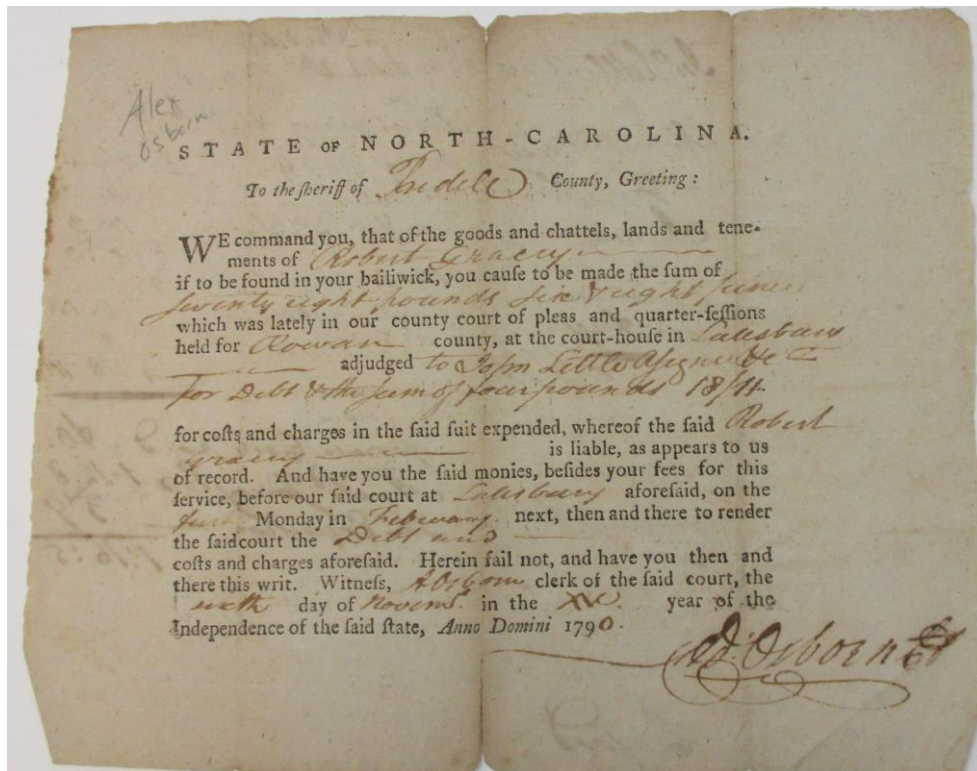 Alex
Osborn
STATE OF NORTH-CAROLINA.
To the ſheriff of Iredell County, Greeting:
WE command you, that of the goods and chattels, lands and tene-
ments of Robert Gracey
if to be found in your bailiwick, you cauſe to be made the ſum of
Seventy eight pounds Six & eight pence
which was lately in our county court of pleas and quarter-ſeſſions
held for Rowan county, at the court-houſe in Salisbury
adjudged to John Little Aſsignee &c
for Debt & the Sum of four pounds 18/11
for coſts and charges in the ſaid ſuit expended, whereof the ſaid Robert
Gracey is liable, as appears to us
of record. And have you the ſaid monies, beſides your fees for this
ſervice, before our ſaid court at Salisbury aforeſaid, on the
first Monday in February next, then and there to render
the ſaid court the Debt and
coſts and charges aforeſaid. Herein fail not, and have you then and
there this writ. Witneſs, A Osborn clerk of the ſaid court, the
day of Novemr. in the XV. year of the
Independence of the ſaid ſtate, Anno Domini 1790.
Ad: Osborn